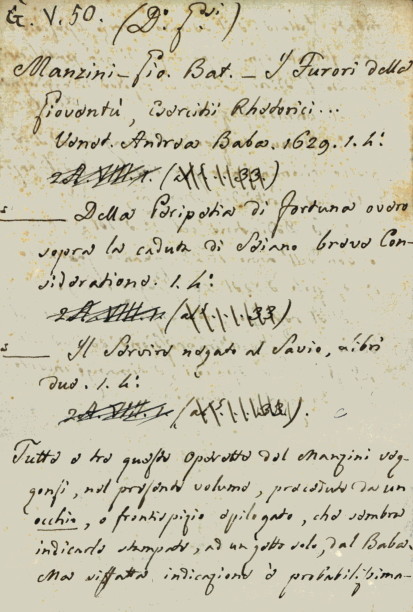 G. V. 50. (D.º G.si)
Manzini - Gio. Bat. - I Furori della
Gioventù, Esercitii Rhetorici...
Venet. Andrea Baba. 1629. 1. 4.º
33)
Della Peripetia di fortuna overo
sopra la caduta di Seiano breve Con-
sideratione. 1. 4.º
33)
Il Servire negato al Savio, Libri
due. 1. 4.º
33).
Tutte e tre queste operette del Manzini veg-
gonsi, nel presente volume, precedute da un
occhio, o frontispizio spilogato, che sembra
indicarle stampate, ad un getto solo, dal Baba.
Ma siffatta indicazione è probabilissima-